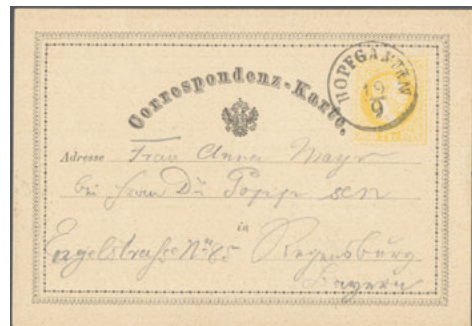 Correspondenz-Karte.
HOPFGARTEN
19
9
Adresse Frau Anna Mayr
bei Herrn Dr Popp sen
in
Engelstraße No Regensburg
Bayern